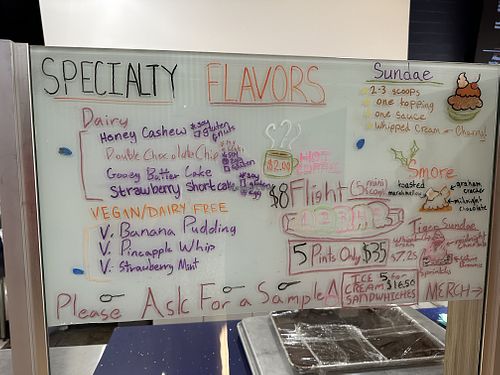 SPECIALTY FLAVORS
Dairy
Honey Cashew *soy *gluten *nuts
Double Chocolate Chip
Gooey Butter Cake
Strawberry Shortcake *soy *gluten *egg
VEGAN/DAIRY FREE
V. Banana Pudding
V. Pineapple Whip
V. Strawberry Mint
Please Ask For a Sample
Sundae
2-3 scoops
one topping
one sauce
whipped cream + Cherry!
$2.00
HOT COFFEE
$8 Flight (5 mini scoops)
5 Pints Only $35
ICE CREAM SANDWICHES
5 for $16.50
Smore
toasted marshmallow
graham cracker
milknight chocolate
Tiger Sundae
$7.25
Sprinkles
MERCH→